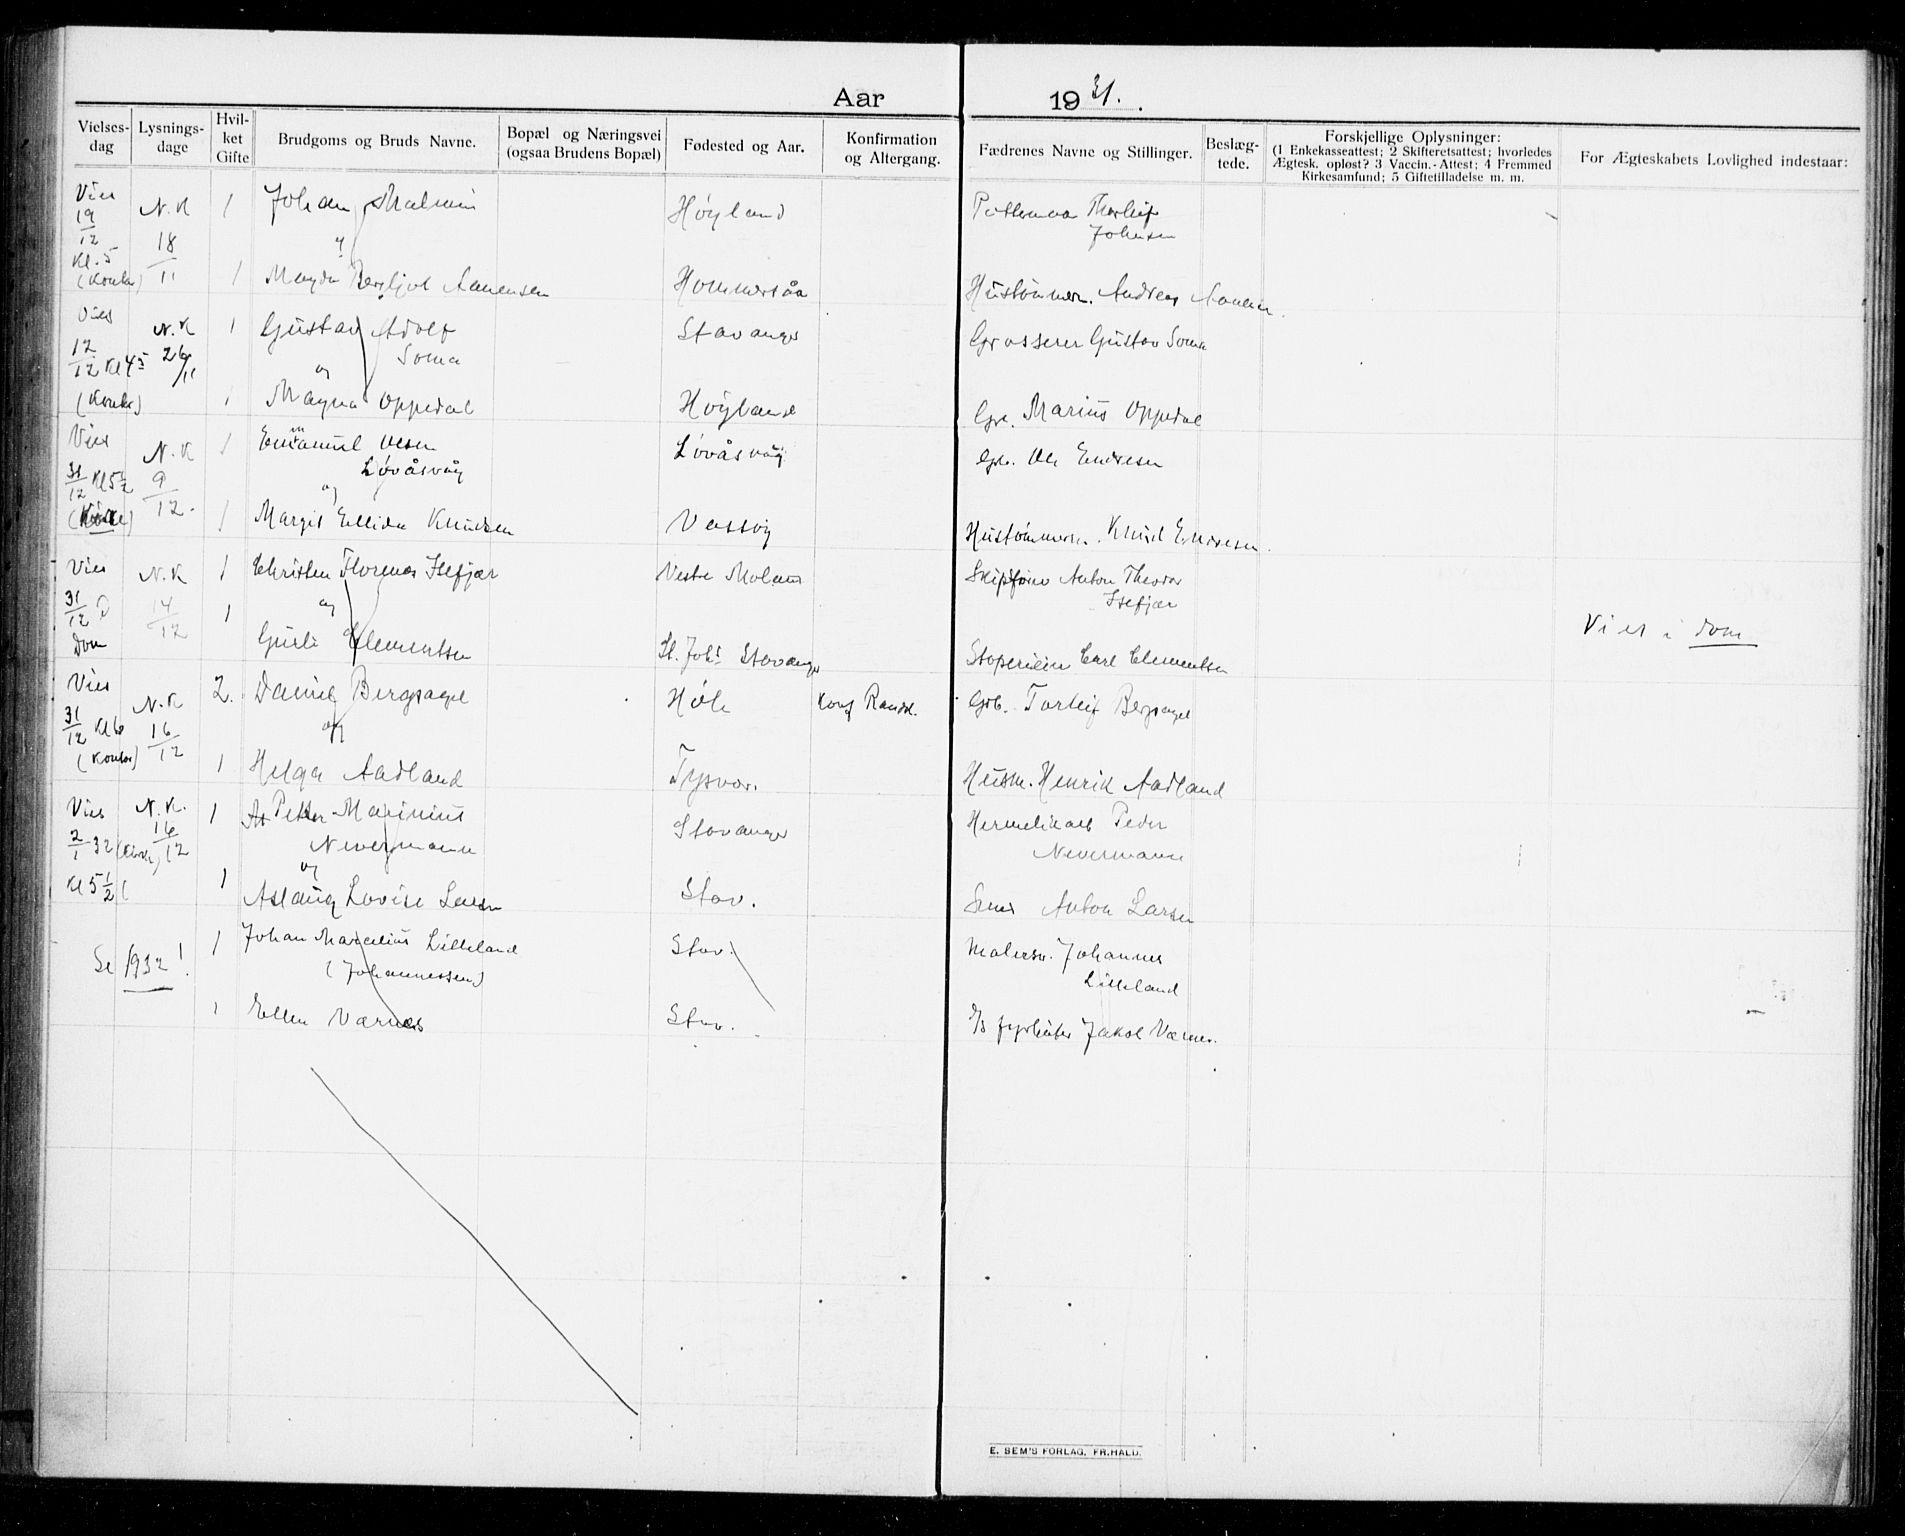 Aar 1931.
Vielses-
dag
Lysnings-
dage
Hvil-
ket
Gifte
Brudgoms og Bruds Navne.
Bopæl og Næringsvei
(ogsaa Brudens Bopæl)
Fødested og Aar.
Konfirmation
og Altergang.
Fædrenes Navne og Stillinger.
Beslæg-
tede.
Forskjellige Oplysninger:
(1 Enkekasseattest; 2 Skifteretsattest; hvorledes
Ægtesk. opløst? 3 Vaccin.-Attest; 4 Fremmed
Kirkesamfund; 5 Giftetilladelse m. m.
For Ægteskabets Lovlighed indestaar:
Vies
19/12
Kl. 5
(Kontor)
N. K
18/11
1 Johan Malmin Høyland Thorleif
Johnsen
1 Magda Bergljot Aanensen Hommersåk Hustømmerm. Andreas Aanensen
Vies
12/12 Kl 4
(Kontor)
N. K
26/11
1 Gustav Adolf Stavanger Grosserer Gustav Soma
Soma
og
1 Magna Oppedal Høyland Gbr. Marius Oppedal
Vies
31/12 Kl 5½
N. K
9/12.
1 Emanuel Olsen Løvåsvåg Gbr. Ole Endresen
Løvåsvåg
og
1 Margit Ellida Knudsen Vassvig Hustømmerm. Knud Endresen.
Vies
31/12
Dom
N. K
14/12
1 Christen Florenes Isefjær Vestre Moland Skipsfører Anton Theodor
Isefjær
og
1 Clementsen St. Joh. Stavanger Carl Clementsen
Vies i dom
Vies
31/12 Kl 6
(Kontor)
N. K
16/12
2. Daniel Bergsagel Høle Konf Gbr. Torleif Bergsagel
og
1 Helga Aadland Tysvær. Husm. Henrik Aadland
Vies
2/1 32 (Kirke)
Kl 5½
N. K.
16/12
1 Petter Marinius Stavanger Peder
Nevermann Nevermann
og
1 Aslaug Lovise Larsen Stav. Anton Larsen
Se 1932!
1 Johan Marcelius Lilleland Stav. Malersv. Johannes
(Johannessen) Lilleland
1 Ellen Varnes Stav. fyrbøter Jakob Varnes.
E. SEM'S FORLAG, FR.HALD.